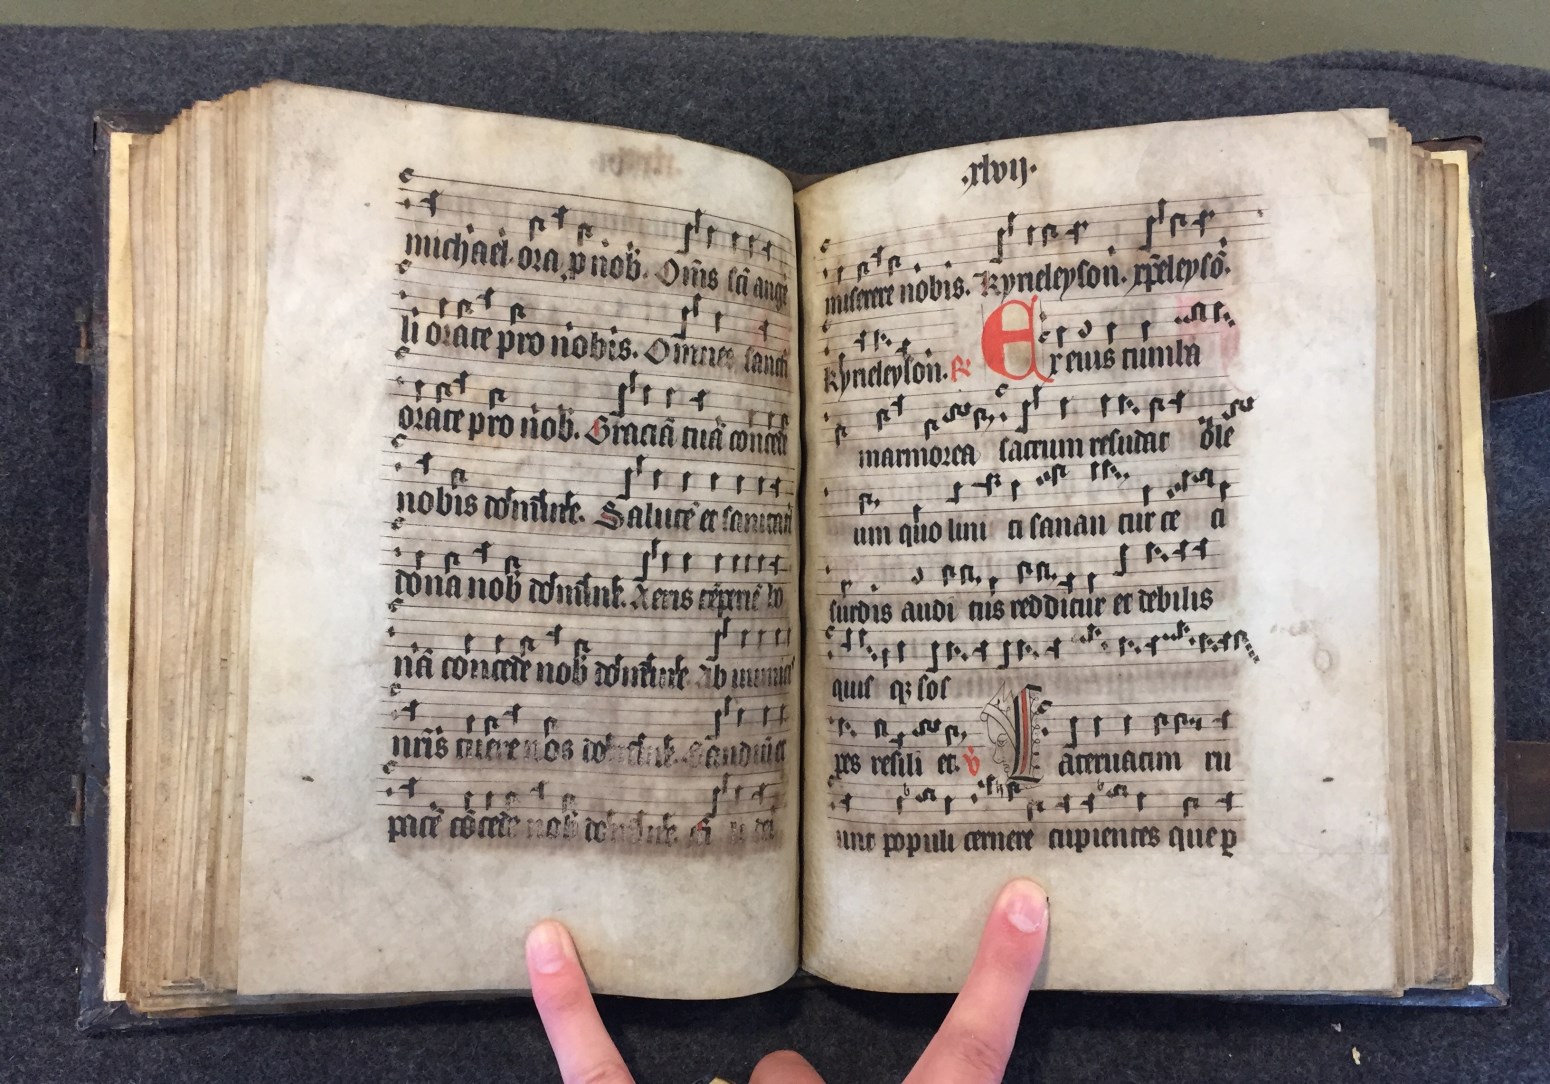 michael ora p nob. Om̄s sc̄i ange
li orate pro nobis. Omnes sancti
orate pro nob. Graciā tuā concede
nobis domine. Salutē et sanitatē
dona nob domine. Aeris tēperiē bo
nā concede nob domine. Ab inimicis
nr̄is tuere nos domine.
pacē cōcede nob domine.
.xlvij.
miserere nobis. Kyrieleyson. xp̄eleysō.
Kyrieleyson. R Ex eius tumba
marmorea sacrum resudat ole
um quo lini ti sanan tur ce ci
surdis audi tus redditur et debilis
quis qȝ sos
pes resili et. V Cateruatim ru
unt populi cernere cupientes que p